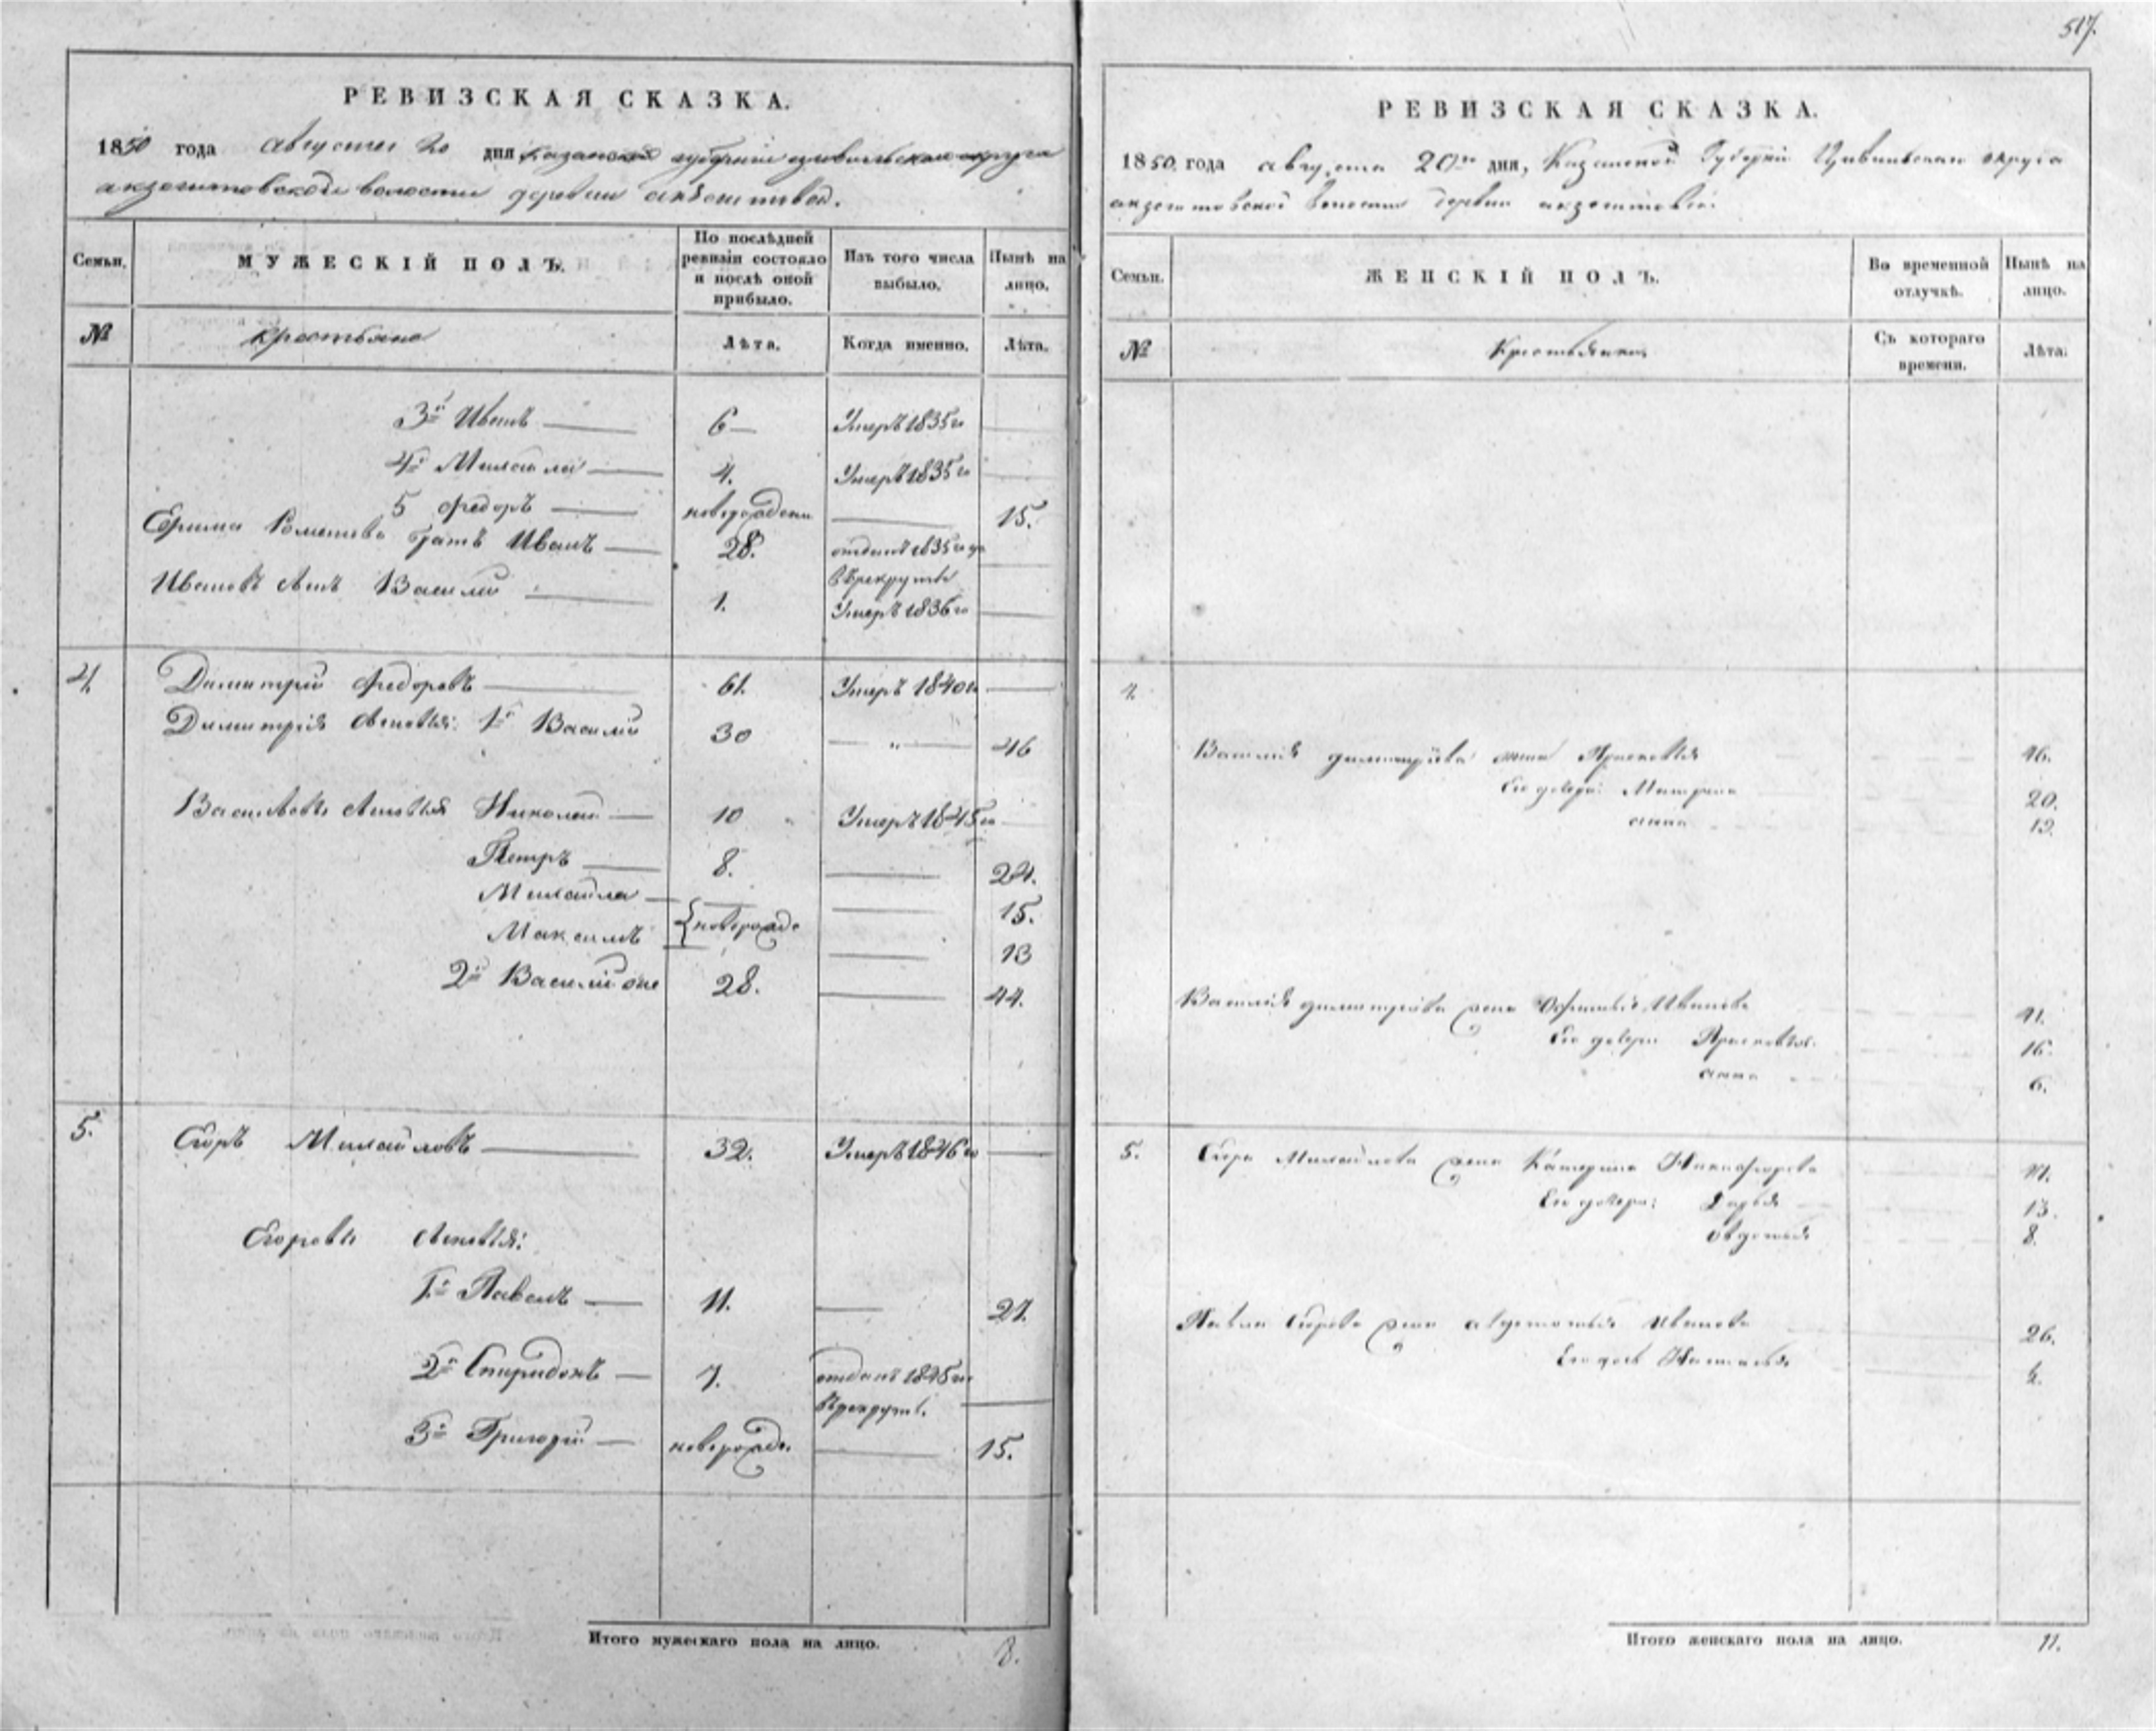 517.
РЕВИЗСКАЯ СКАЗКА.
1850 года августа 20 дня Казанской губернии Цивильскаго округа
акзегитовской волости деревни акзегитовой.
Семьи. МУЖЕСКІЙ ПОЛЪ. По послѣдней ревизіи состояло и послѣ оной прибыло. Изъ того числа выбыло. Нынѣ на лицо.
№ крестьяне Лѣта. Когда именно. Лѣта.
3й Иванъ 6 Умеръ 1835го
4й Михайла 4. Умеръ 1835го
5 Федоръ новорожден 15.
Ефима братъ Иванъ 28. отданъ 1835го
въ рекруты
Ивановъ сынъ Василий 1. Умеръ 1836го
4. Димитрий Федоровъ 61. Умеръ 1840го
Димитрия сыновья: 1й Василий 30 46
Васильевы сыновья Николай 10 Умеръ 1845го
Петръ 8. 24.
Михайла 15.
новорожде
Максимъ 13
2й Василий 28. 44.
5. Егоръ Михайловъ 32. Умеръ 1846го
Егоровы сыновья:
1й Павелъ 11. 27.
2й Спиридонъ 7. отданъ 1845го
в рекруты.
3й Григорій новорожде. 15.
Итого мужескаго пола на лицо. 8.
РЕВИЗСКАЯ СКАЗКА.
1850 года августа 20го дня, Казанской Губерніи Цивильскаго округа
акзегитовской волости деревни акзегитовой.
Семьи. ЖЕНСКІЙ ПОЛЪ. Во временной отлучкѣ. Нынѣ на лицо.
№ Крестьянки Съ котораго времени. Лѣта.
4.
Василия димитріева жена Прасковья 46.
Его дочери: Матрена 20.
анна 13.
Василия димитріева жена Иванова 41.
Его дочери Прасковья 16.
анна 6.
5. Егора Михайлова жена Катерина Никифорова 41.
Его дочери: Дарья 13.
Овдотья 8.
Павла Егорова жена авдотья Иванова 26.
Его дочь Наталья 2.
Итого женскаго пола на лицо. 11.